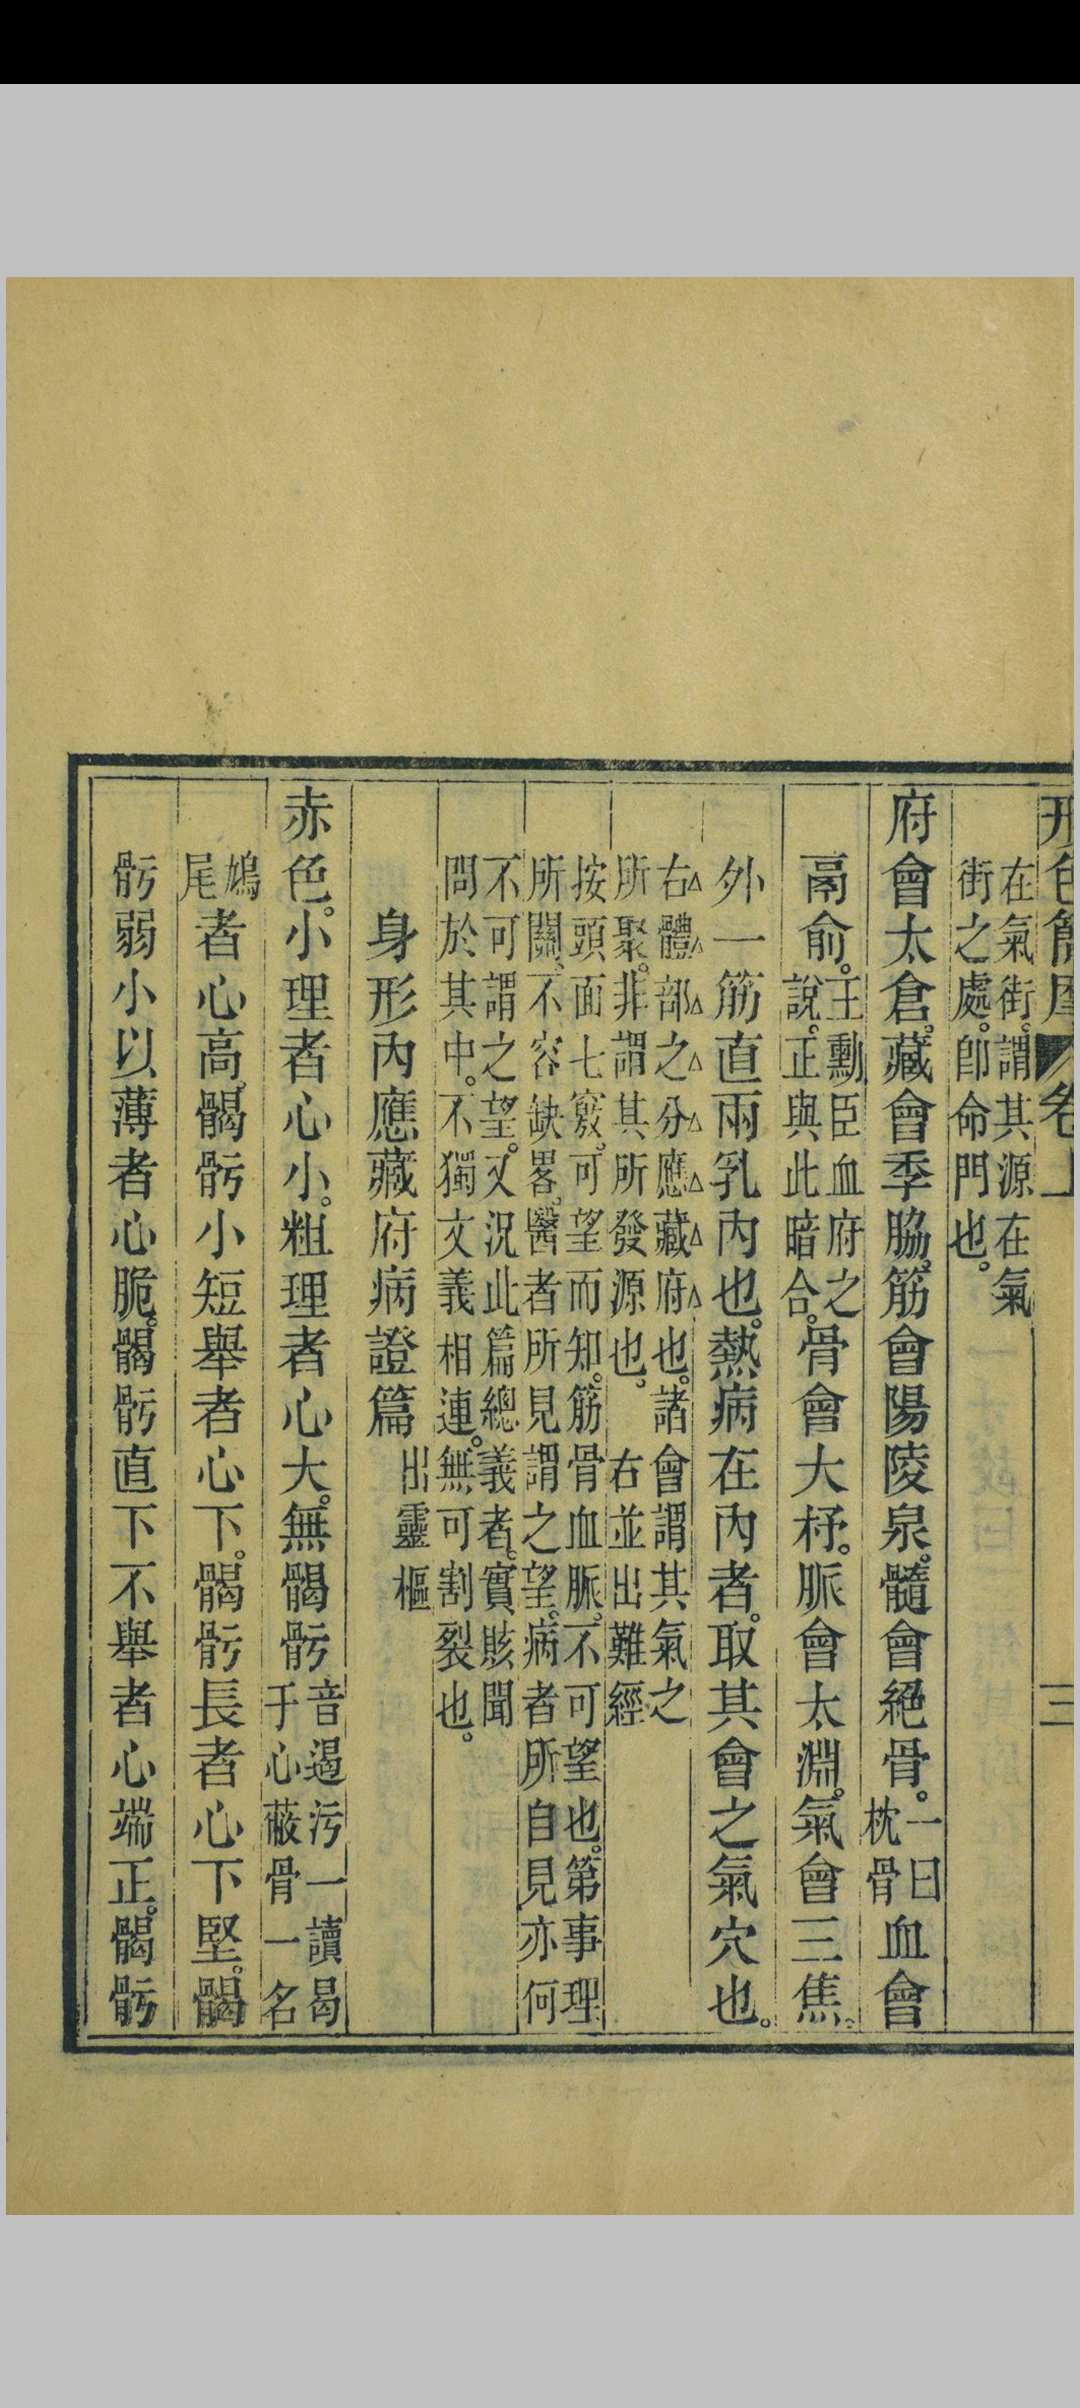 形色簡摩 卷上 三
在氣街。謂其源在氣
街之處。卽命門也。
府會太倉。藏會季脇。筋會陽陵泉。髓會絕骨。一曰枕骨血會
鬲俞。王勳臣血府之說。正與此暗合。骨會大杼。脈會太淵。氣會三焦。
外一筋直兩乳內也。熱病在內者。取其會之氣穴也。
右體部之分應藏府也。諸會謂其氣之
所聚。非謂其所發源也。 右並出難經
按頭面七竅。可望而知。筋骨血脈。不可望也。第事理
所關。不容缺畧。醫者所見謂之望。病者所自見亦何
不可謂之望。又況此篇總義者。實賅聞
問於其中。不獨文義相連。無可割裂也。
身形內應藏府病證篇 出靈樞
赤色。小理者心小。粗理者心大。無𩩲𩨗音遏污一讀曷于心蔽骨一名
鳩尾者心高。𩩲𩨗小短舉者心下。𩩲𩨗長者心下堅。𩩲
𩨗弱小以薄者心脆。𩩲𩨗直下不舉者心端正。𩩲𩨗